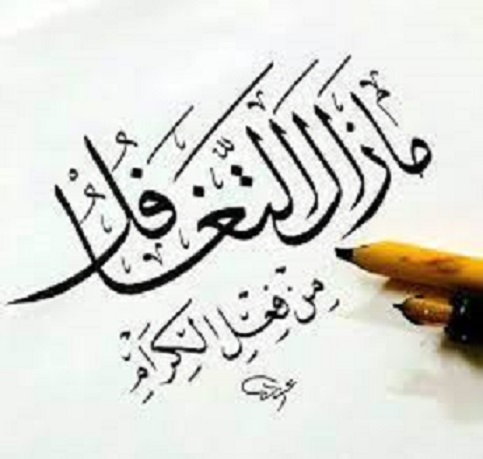 مَازَالَ التَّغَافُلُ
مِنْ فِعْلِ الْكِرَامِ